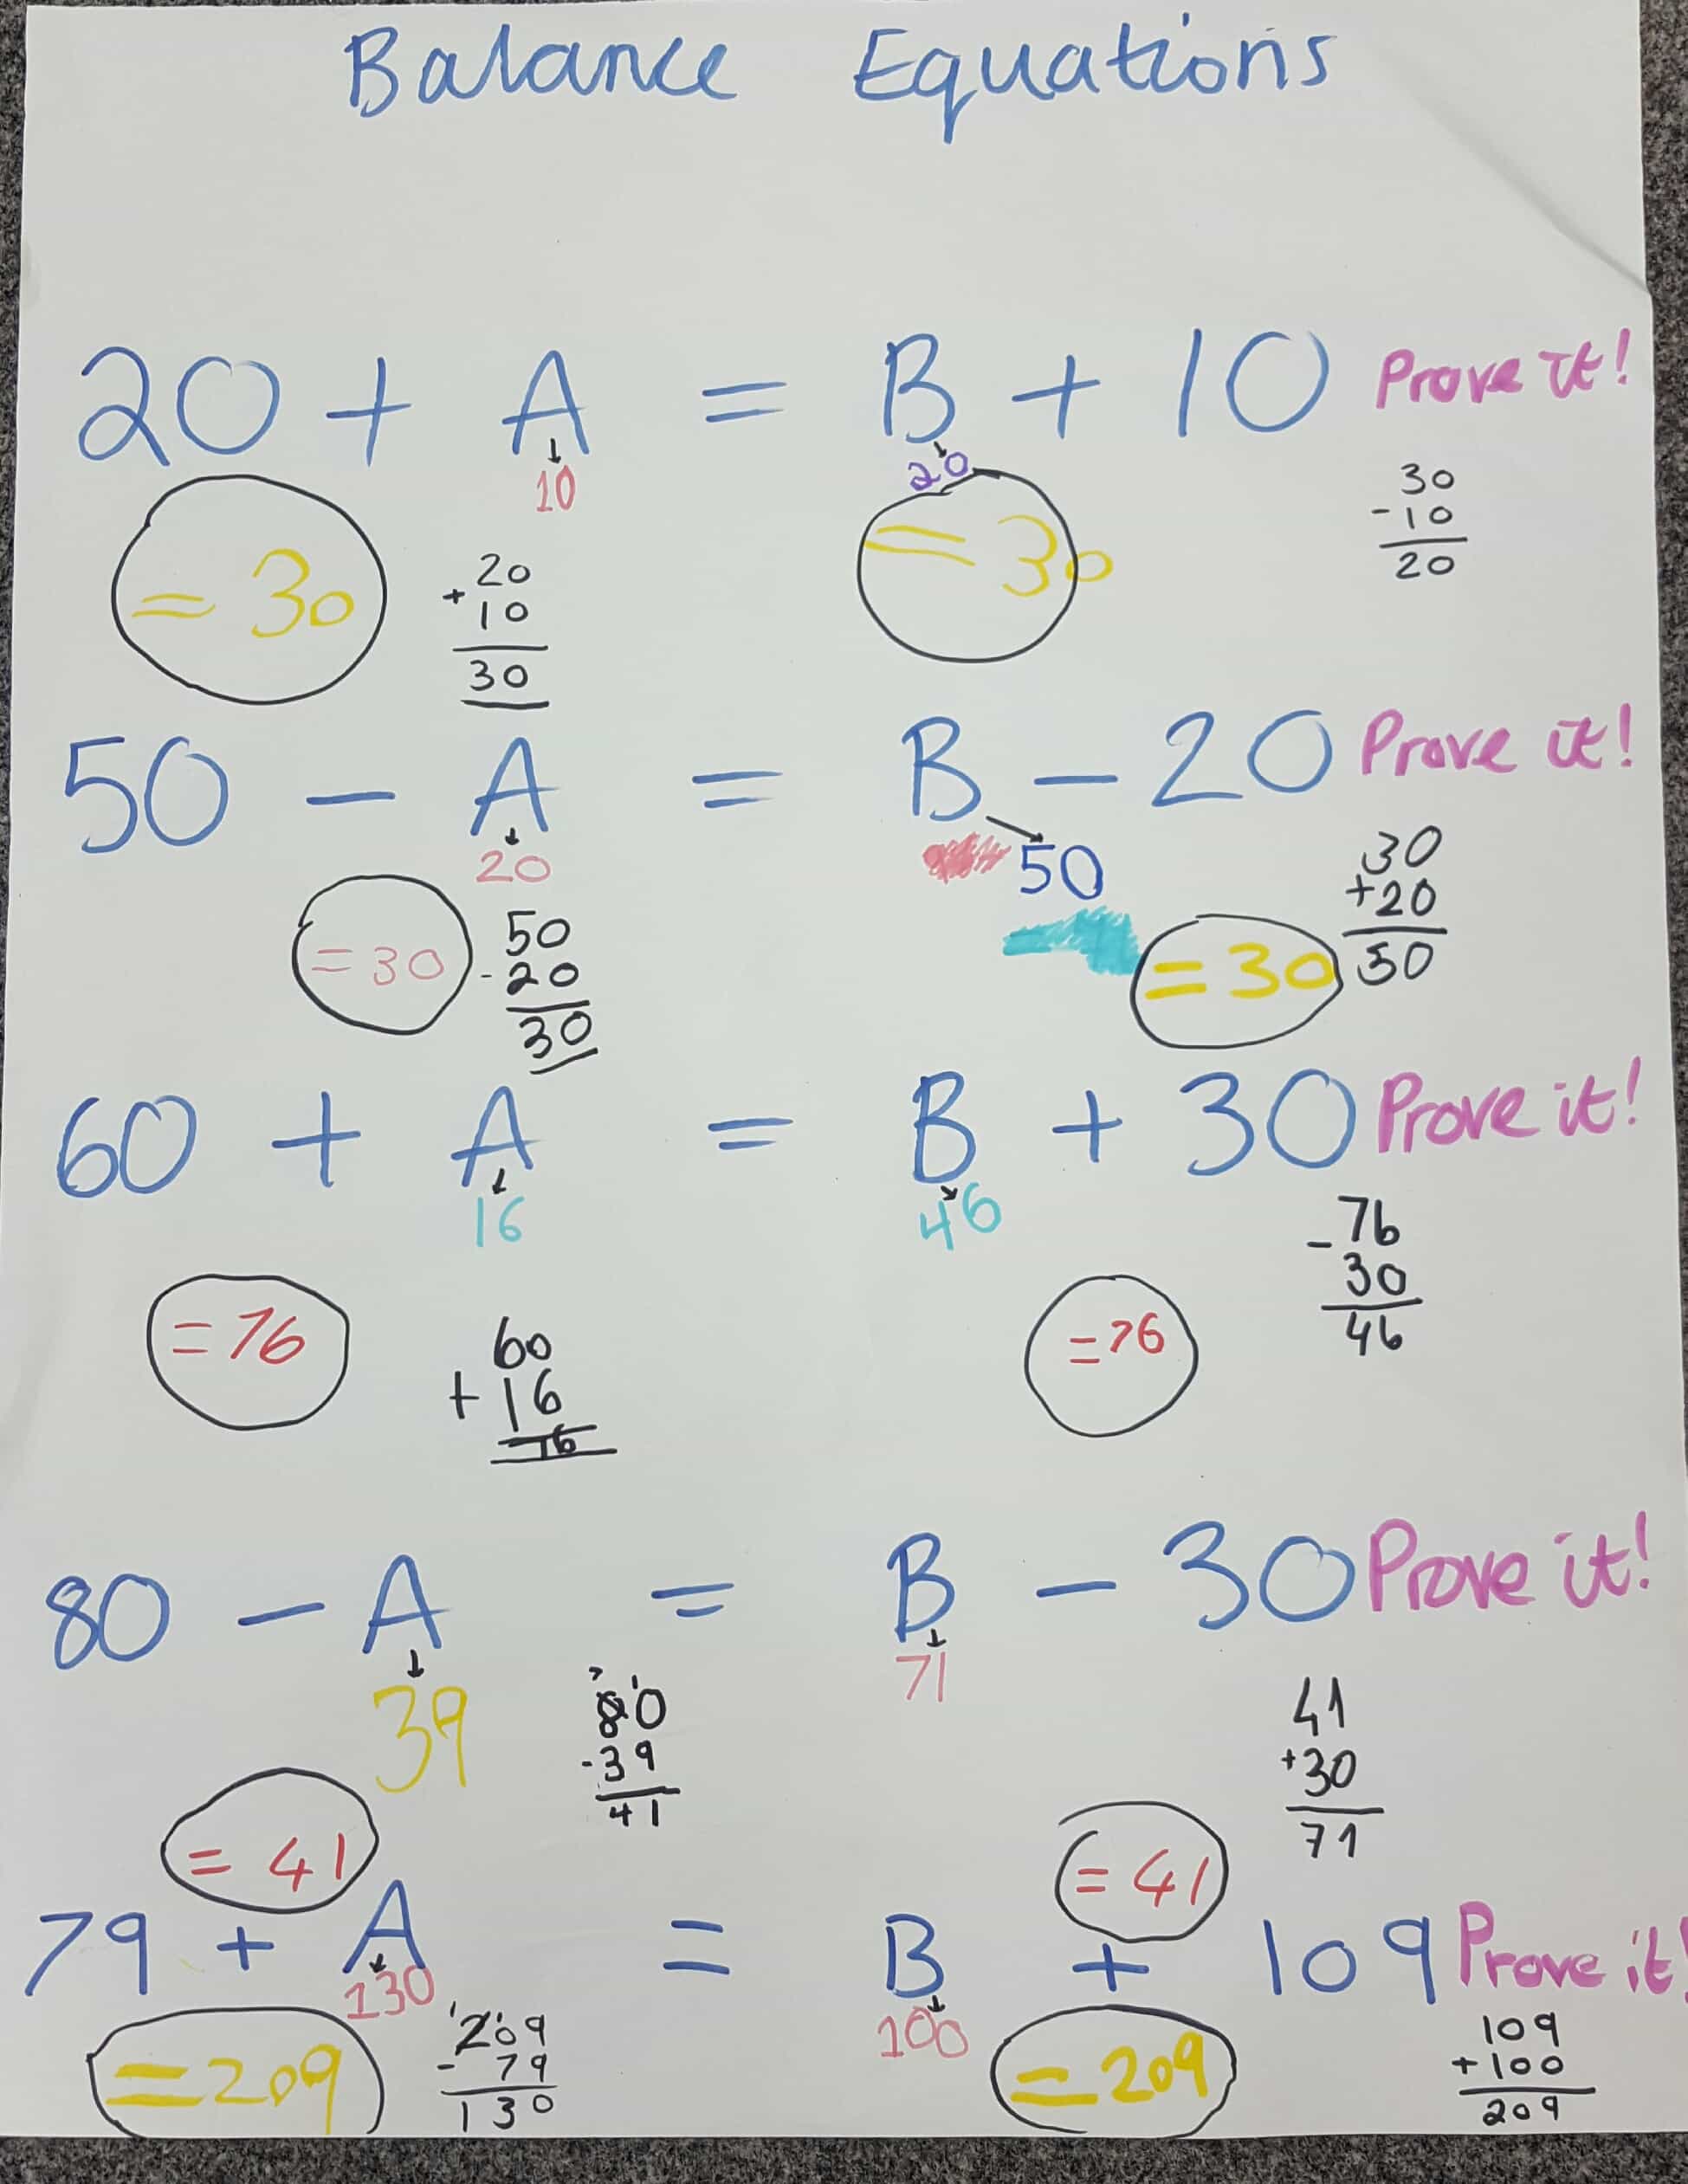 Balance Equations
20 + A = B + 10 Prove it!
10
20
= 30
+ 20
10
30
= 30
30
- 10
20
50 - A = B - 20 Prove it!
20
50
= 30
50
- 20
30
= 30
30
+ 20
50
60 + A = B + 30 Prove it!
16
46
= 76
60
+ 16
76
= 76
- 76
30
46
80 - A = B - 30 Prove it!
39
71
= 41
7 1
80
- 39
41
= 41
41
+ 30
71
79 + A = B + 109 Prove it!
130
100
= 209
1 1
209
- 79
130
= 209
109
+ 100
209